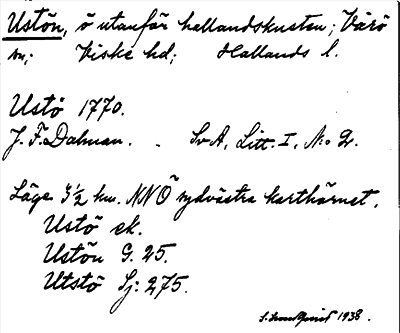 Ustön, ö utanför hallandskusten; Värö
sn; Viske hd; Hallands l.
Ustö 1770.
J. F. Dalman. . Sv A, Litt. I, No 2.
Läge 3½ km. NNÖ sydvästra karthörnet.
Ustö ek.
Ustön G. 25.
Utstö Sj: 275.
1938.